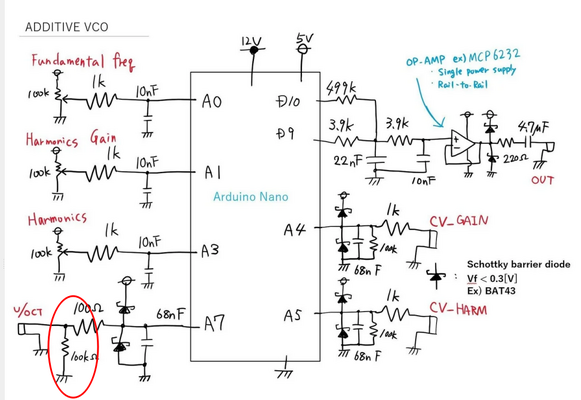 ADDITIVE VCO
12V
5V
Fundamental freq
1k
10nF
100k
A0
Harmonics Gain
1k
10nF
100k
A1
Harmonics
1k
10nF
100k
A3
V/OCT
100Ω
68nF
100kΩ
A7
Arduino Nano
D10
499k
D9
3.9k
3.9k
22nF
10nF
OP-AMP ex) MCP6232
・Single power supply
・Rail-to-Rail
4.7μF
220Ω
OUT
A4
1k
CV_GAIN
100k
68nF
A5
1k
CV-HARM
100k
68nF
Schottky barrier diode
: Vf < 0.3[V]
Ex) BAT43